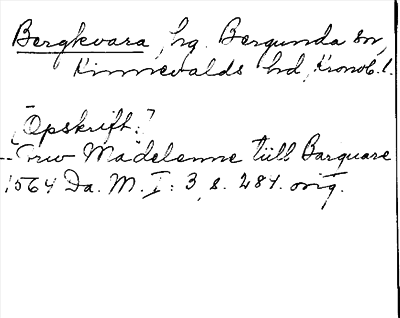 Bergkvara, hg. Bergunda sn,
Kinnevalds hd, Kronob. l.
[Opskrift:]
-- Frw Madelenne tüll Barquare
1564 Da. M. I: 3, s. 284. orig.